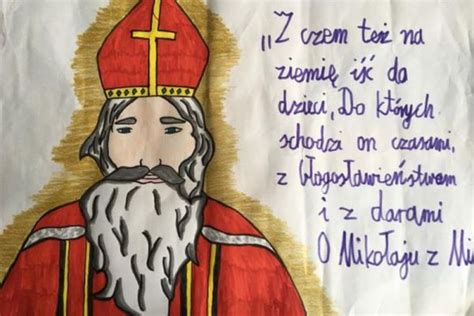 „Z czem też na
ziemię iść do
dzieci, Do których
schodzi on czasami,
z błogosławieństwem
i z darami
O Mikołaju z Mi